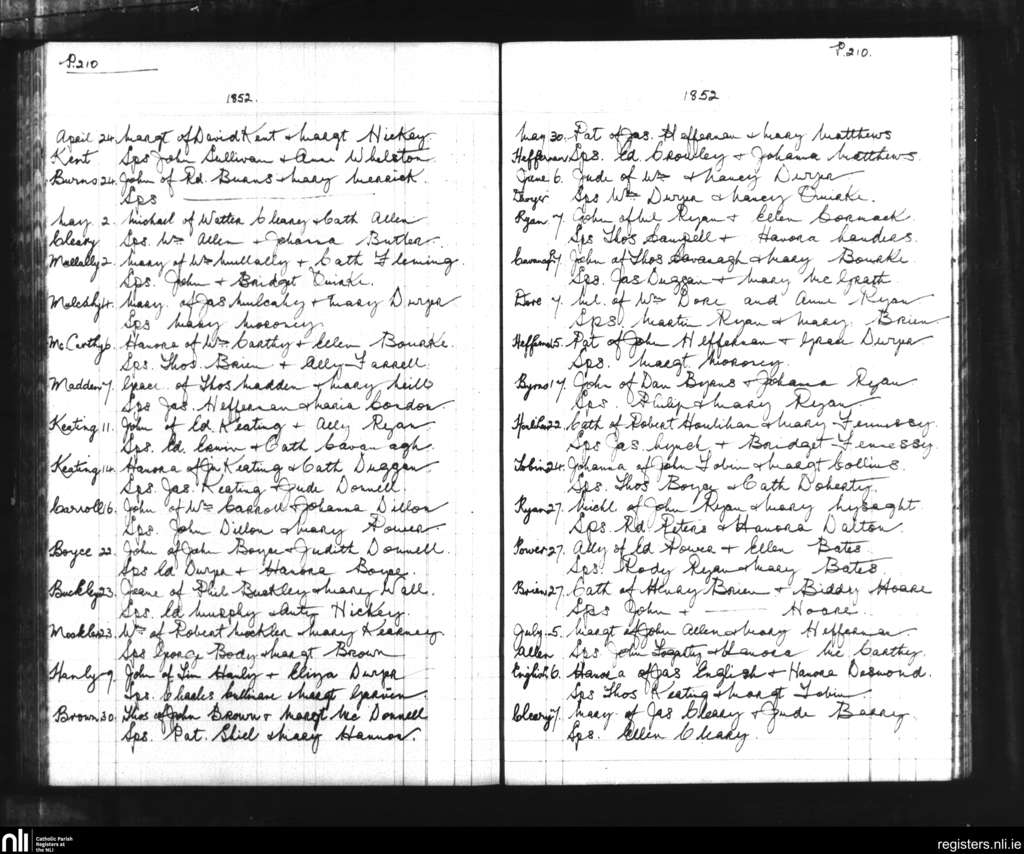 P.210
1852.
April 24. Margt of David Kent & Margt Hickey.
Kent Sps John Sullivan & Anne Whelston
Burns 24. John of Rd. Burns & Mary Merrick.
Sps
May 2. Michael of Walter Cleary & Cath Allen
Cleary Sps. Wm Allen & Johanna Butler.
Mullally 2. Mary of Wm Mullally & Cath Fleming.
Sps. John & Bridget Quirke.
Mulcahy 4. Mary of Jas Mulcahy & Mary Dwyer
Sps Mary Moroney
McCarthy 6. Hanora of Wm Carthy & Ellen Bourke.
Sps. Thos. Brien & Ally Farrell.
Madden 7. Grace of Thos Madden & Mary Neill
Sps Jas. Heffernan & Maria Condon.
Keating 11. John of Ed. Keating & Ally Ryan
Sps. Ed. & Cath Cavanagh.
Keating 14. Hanora of Jn Keating & Cath Duggan
Sps. Jas. Keating & Jude Donnell.
Carroll 16. John of Wm Carroll & Johanna Dillon
Sps. John Dillon & Mary Power.
Boyce 22. John of John Boyce & Judith Donnell.
Sps Ed Dwyer & Hanora Boyce.
Buckley 23. Jeane of Phil Buckley & Mary Wall.
Sps. Ed Murphy & Anty Hickey.
Mockler 23. Wm of Robert Mockler & Mary Kearney
Sps George Body & Margt Brown
Hanly 9. John of Tim Hanly & Eliza Dwyer
Sps. Charles Cullinane Margt
Brown 30. Thos of John Brown & Margt Mc Donnell
Sps. Pat. Shiel & Mary Hannon.
P.210.
1852
May 30. Pat of Jas. Heffernan & Mary Matthews
Heffernan Sps. Ed. Crowley & Johanna Matthews.
June 6. Jude of Wm & Nancy Dwyer
Dwyer Sps Wm Dwyer & Nancy Quirke.
Ryan 7. John of Ml Ryan & Ellen Cormack.
Sps Thos & Hanora Landers.
Cavanagh 7. John of Thos Cavanagh & Mary Bourke
Sps. Jas Duggan & Mary Mc Grath.
Dore 7. Ml. of Wm Dore and Anne Ryan
Sps. Martin Ryan & Mary Brien.
Heffernan 15. Pat of John Heffernan & Grace Dwyer
Sps. Margt Moroney.
Byrns 17. John of Dan Byrns & Johanna Ryan
Sps. Philip & Mary Ryan
Houlihan 22. Cath of Robert Houlihan & Mary Fennessy.
Sps Jas. Lynch & Bridget Fennessy
Tobin 24. Johanna of John Tobin & Margt Collins.
Sps. Thos Boyce & Cath Doherty.
Ryan 27. Michl. of John Ryan & Mary Lysaght.
Sps. Rd Peters & Hanora Dalton.
Power 27. Ally of Ed Power & Ellen Bates.
Sps. Rody Ryan & Mary Bates.
Brien 27. Cath of Henry Brien & Biddy Hoare
Sps John & —— Hoare.
July 5. Margt of John Allen & Mary Heffernan.
Allen Sps John Fogarty & Hanora Mc Carthy.
English 6. Hanora of Jas English & Hanora Desmond.
Sps Thos Keating & Margt Tobin
Cleary 7. Mary of Jas Cleary & Jude Barry.
Sps. Ellen Cleary.
nli
Catholic Parish
Registers at
the NLI
registers.nli.ie